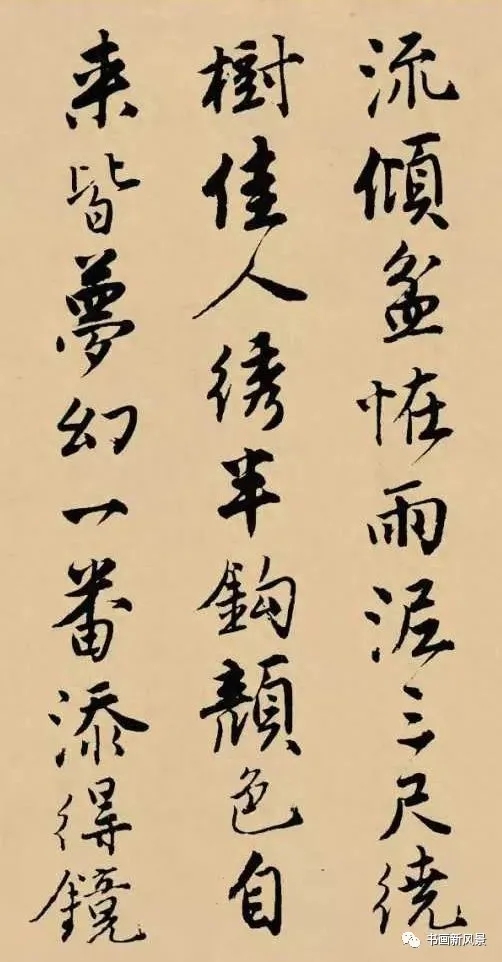 流傾盆恠雨泥三尺繞
樹佳人綉半鈎顏色自
来皆夢幻一番添得鏡
书画新风景